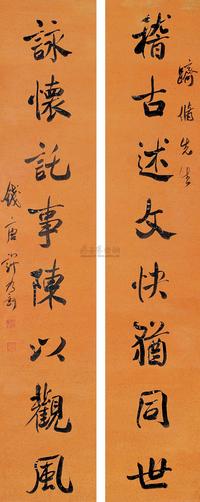 蹻脩先生
稽古述文快猶同世
詠懷託事陳以觀風
錢唐許乃釗